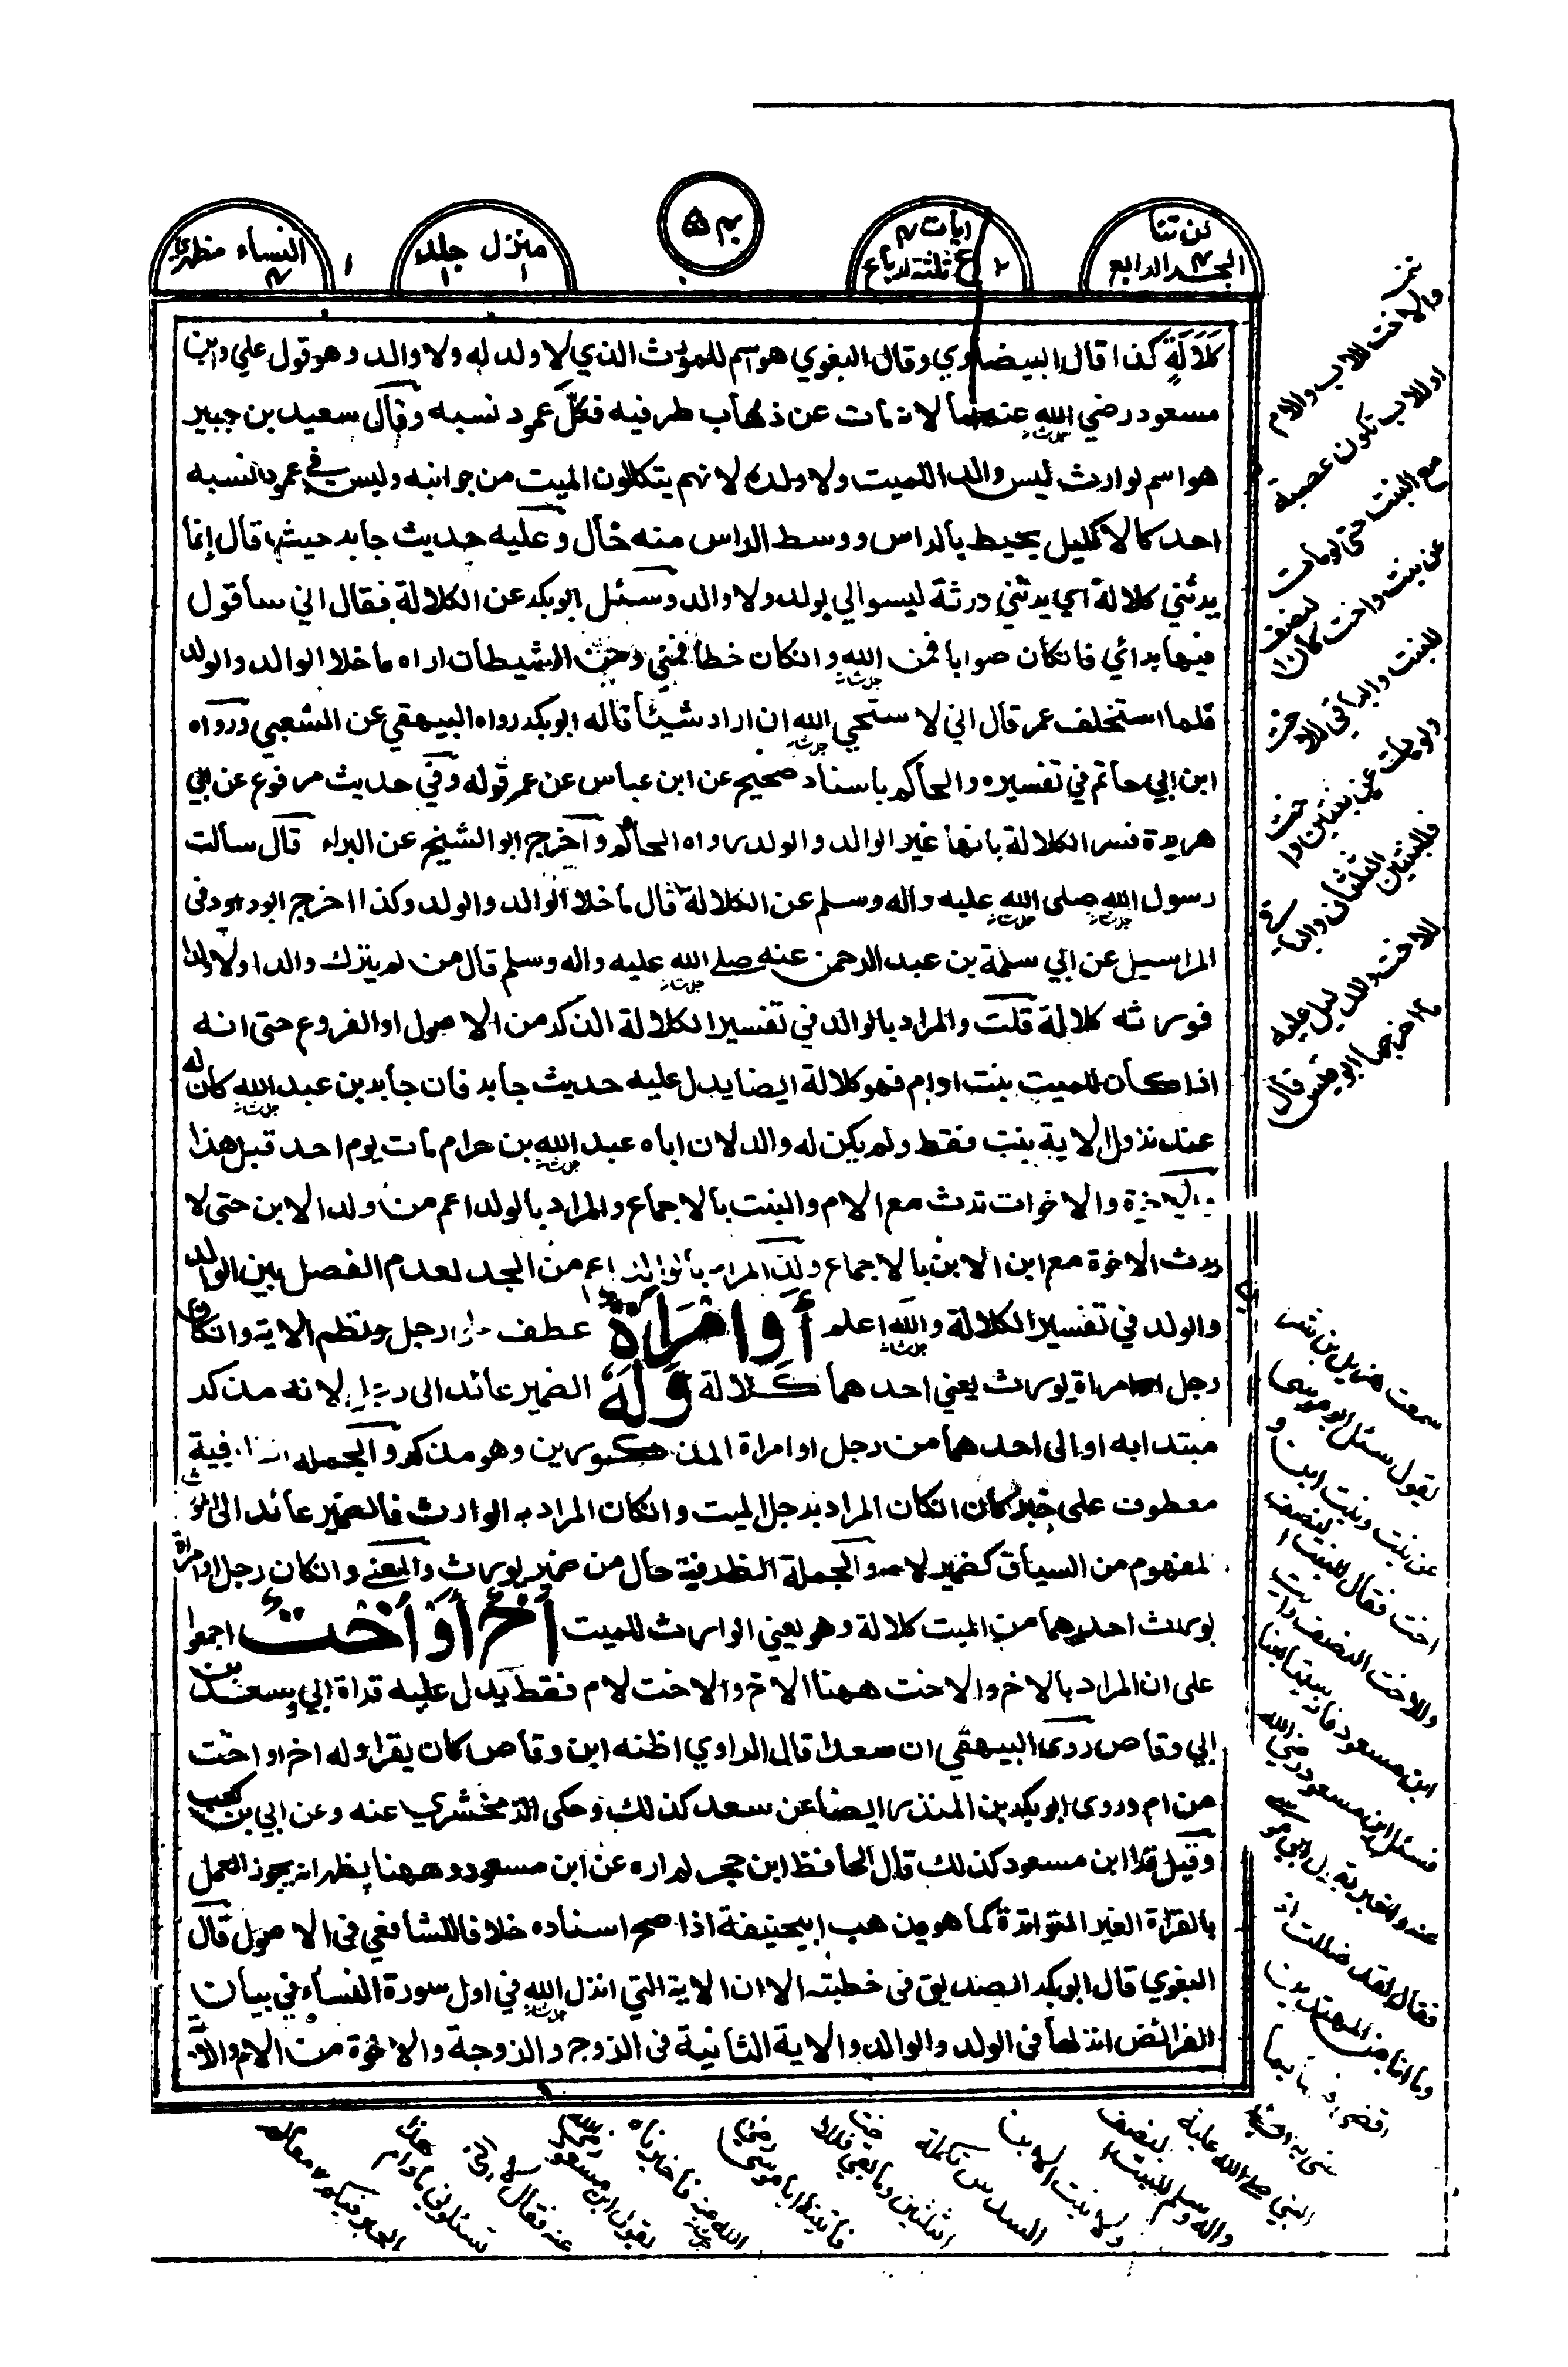 لن تنا
الجزء الرابع
ايات
ثلثة ارباع
منزل جلد
النساء مظهري
كَلَالَةٍ كذا قال البيضاوي وقال البغوي هو اسم للمورث الذي لا ولد له ولا والد وهو قول علي وابن
مسعود رضي الله عنهما لانه مات عن ذهاب طرفيه فكل عمود نسبه وقال سعيد بن جبير
هو اسم لوارث ليس والدا للميت ولا ولده لانهم يتكللون الميت من جوانبه وليس في عمود النسبه
احد كالاكليل يحيط بالراس ووسط الراس منه خال وعليه حديث جابر حيث قال إنما
يرثني كلالة اي يرثني ورثة ليسوا لي بولد ولا والد وسئل ابو بكر عن الكلالة فقال اني سأقول
فيها برائي فان كان صوابا فمن الله وانكان خطأ فمني ومن الشيطان اراه ما خلا الوالد والولد
فلما استخلف عمر قال اني لا ستحيي الله ان اراد شيئا قاله ابو بكر رواه البيهقي عن الشعبي ورواه
ابن ابي حاتم في تفسيره والحاكم باسناد صحيح عن ابن عباس عن عمر قوله وفي حديث مرفوع عن ابي
هريرة فسر الكلالة بانها غير الوالد والولد رواه الحاكم واخرج ابو الشيخ عن البراء قال سالت
رسول الله صلى الله عليه واله وسلم عن الكلالة قال ما خلا الوالد والولد وكذا اخرج ابو داود في
المراسيل عن ابي سلمة بن عبد الرحمن عنه صلى الله عليه واله وسلم قال من لم يترك والدا ولا ولدا
فورثه كلالة قلت والمراد بالوالد في تفسير الكلالة الذكر من الاصول او الفروع حتى انه
اذا كان للميت بنت او ام فهو كلالة ايضا يدل عليه حديث جابر فان جابر بن عبد الله كان له
عند نزول الاية بنت فقط ولم يكن له والد لان اباه عبد الله بن حرام مات يوم احد قبل هذا
والاخوة والاخوات ترث مع الام والبنت بالاجماع والمراد بالولد اعم من ولد الابن حتى لا
يرث الاخوة مع ابن الابن بالاجماع وكذا المراد بالوالد اعم من الجد لعدم الفصل بين الوالد
والولد في تفسير الكلالة والله اعلم أَوِ امْرَأَةٌ عطف على رجل ونظم الاية وانكان
رجل او امراة يورث يعني احدهما كلالة وَّلَهٗ الضمير عائد الى رجل لانه مذكر
مبتدا به او الى احدهما من رجل او امراة المذكورين وهو مذكر والجملة الظرفية
معطوف على خبر كان انكان المراد برجل الميت وانكان المراد به الوارث فالضمير عائد الى المورث
لمفهوم من السياق كضمير لامه والجملة الظرفية حال من ضمير يورث والمعنى وانكان رجل او امراة
يورث احدهما من الميت كلالة وهو يعني الوارث للميت أَخٌ أَوْ أُخْتٌ اجمعوا
على ان المراد بالاخ والاخت ههنا الاخ والاخت لام فقط يدل عليه قراة ابي وسعد بن
ابي وقاص روى البيهقي ان سعدا قال الراوي اظنه ابن وقاص كان يقرا وله اخ او اخت
من ام وروى ابو بكر بن المنذر ايضا عن سعد كذلك وحكى الزمخشري عنه وعن ابي بن كعب
وقيل قرا ابن مسعود كذلك قال الحافظ ابن حجر لم اره عن ابن مسعود وههنا يظهر انه يجوز العمل
بالقراة الغير المتواترة كما هو مذهب ابيحنيفة اذا صح اسناده خلافا للشافعي فى الاصول قال
البغوي قال ابو بكر الصديق فى خطبته الا ان الاية التي انزل الله في اول سورة النساء في بيان
الفرائض انزلها فى الولد والوالد والاية الثانية فى الزوج والزوجة والاخوة من الام والاية
والاخت للاب والام
او للاب تكون عصبة
مع البنت حتى لو مات
عن بنت واخت كان النصف
للبنت والباقي للاخت
ولو مات عن بنتين واخت
فللبنتين الثلثان والباقي
للاخت والدليل عليه
ما اخرجها ابو قيس قال
سمعت هذيل بن
يقول سئل ابو موسى
عن بنت وبنت ابن و
اخت فقال للبنت النصف
وللاخت النصف وايت
ابن مسعود فانه سيتابعنا
فسئل ابن مسعود رضي الله
عنه واخبر بقول ابي موسى
فقال لقد ضللت اذ
وما انا من المهتدين
اقضي فيها بما
قضى به
النبي صلى الله عليه
واله وسلم للبنت النصف
ولابنة الابن
السدس تكملة
الثلثين وما بقي فللاخت
فاتينا ابا موسى رضي
الله عنه فاخبرناه
بقول ابن مسعود رضي
عنه فقال
تسئلوني ما دام هذا
الحبر فيكم